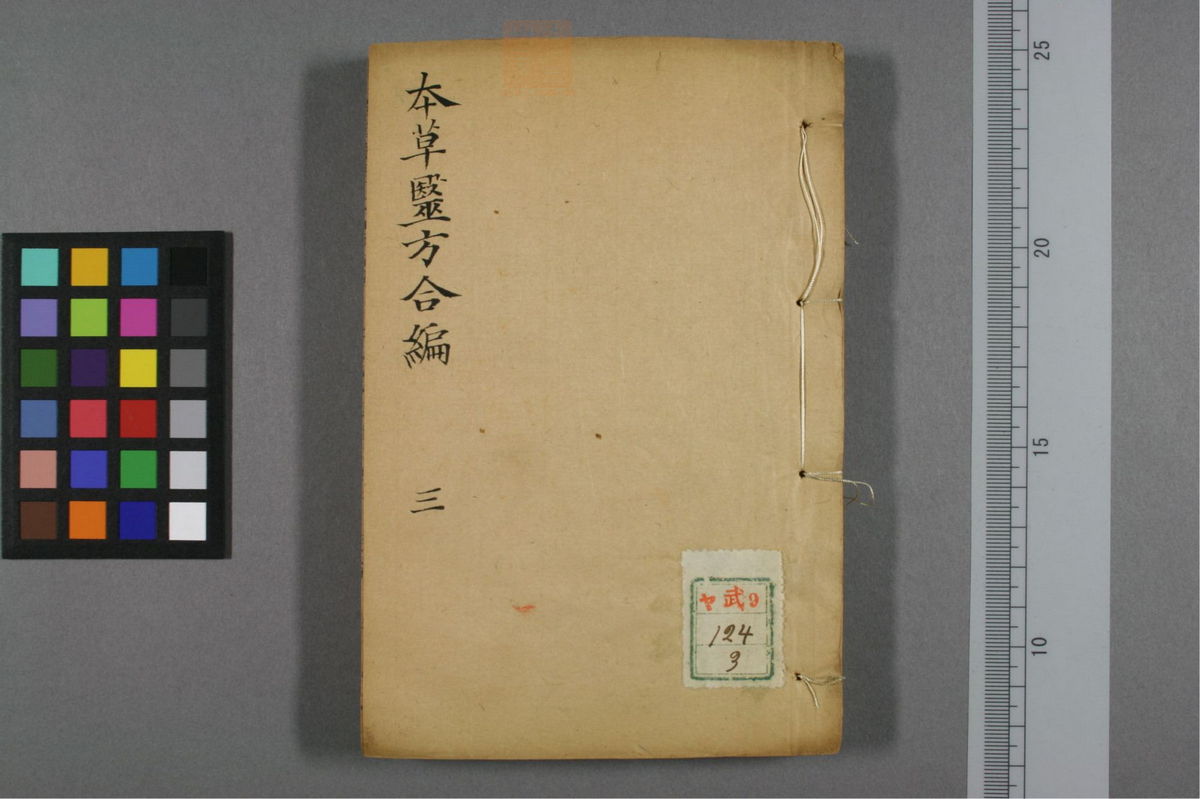 本草毉方合編
三
ヤ武9
124
3
25
20
15
10